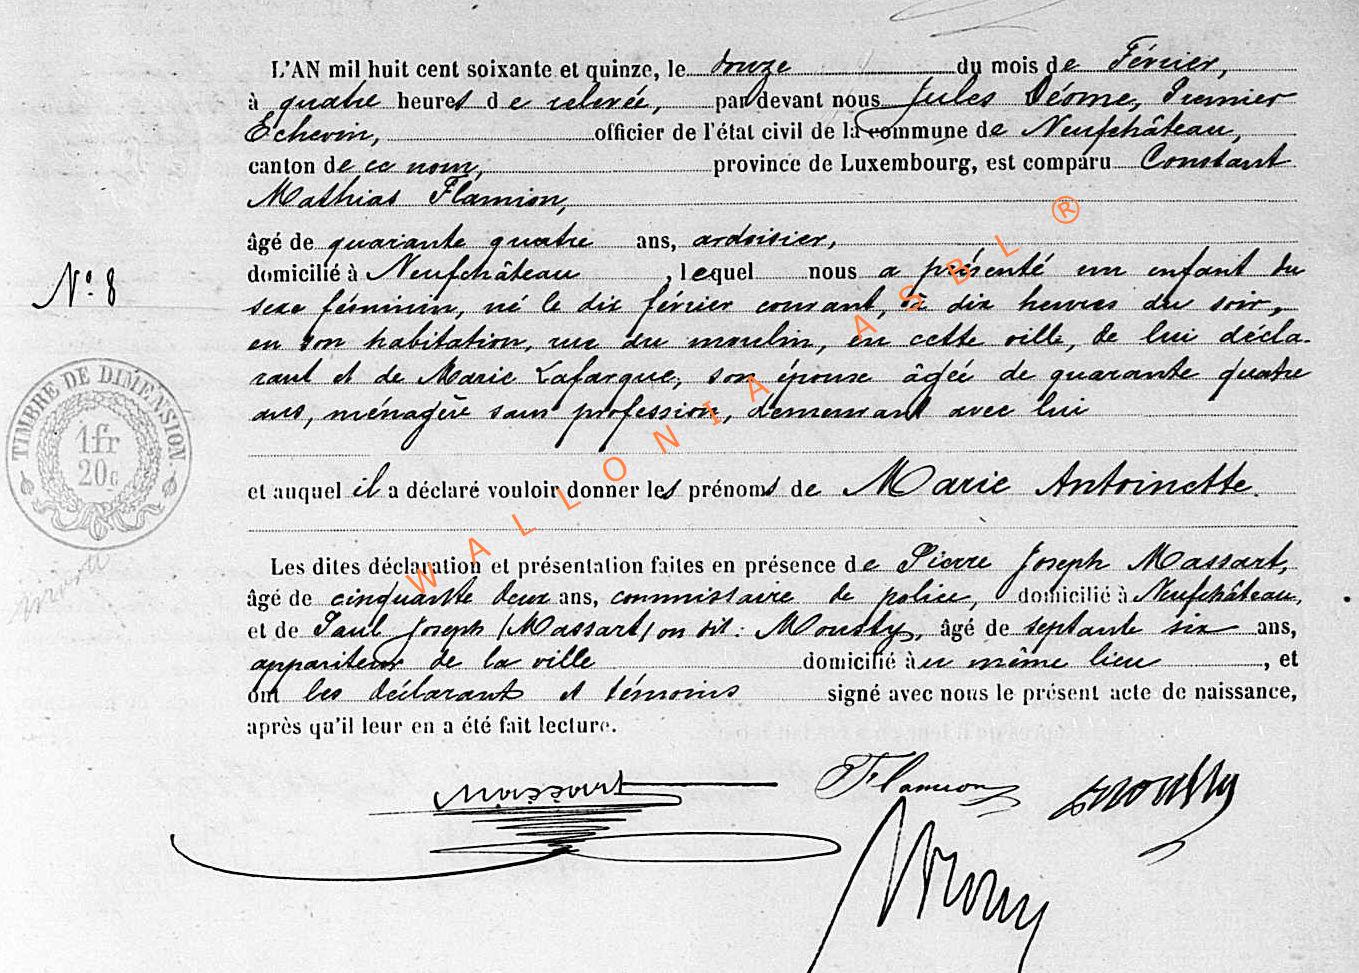 L'AN mil huit cent soixante et quinze, le douze du mois de Février,
à quatre heures de relevée, par devant nous Jules Déome, Premier
Echevin, officier de l'état civil de la commune de Neufchâteau,
canton de ce nom, province de Luxembourg, est comparu Constant
Mathias Flamion,
âgé de quarante quatre ans, ardoisier,
domicilié à Neufchâteau, lequel nous a présenté un enfant du
sexe féminin, né le dix février courant, à dix heures du soir,
en son habitation, rue du moulin, en cette ville, de lui décla-
rant et de Marie Lafargue, son épouse âgée de quarante quatre
ans, ménagère sans profession, demeurant avec lui
et auquel il a déclaré vouloir donner les prénoms de Marie Antoinette.
Les dites déclaration et présentation faites en présence de Pierre Joseph Massart,
âgé de cinquante deux ans, commissaire de police, domicilié à Neufchâteau,
et de Paul Joseph (Massart) on dit: Mousty, âgé de septante six ans,
appariteur de la ville domicilié au même lieu, et
ont les déclarant et témoins signé avec nous le présent acte de naissance,
après qu'il leur en a été fait lecture.
N° 8
TIMBRE DE DIMENSION
1fr
20c
Massart Flamion Mousty
WALLONIA ASBL ®